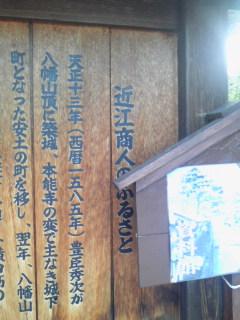 近江商人のふるさと
天正十三年（西暦一五八五年）豊臣秀次が
八幡山頂に築城、本能寺の変で主なき城下
町となった安土の町を移し、翌年、八幡山